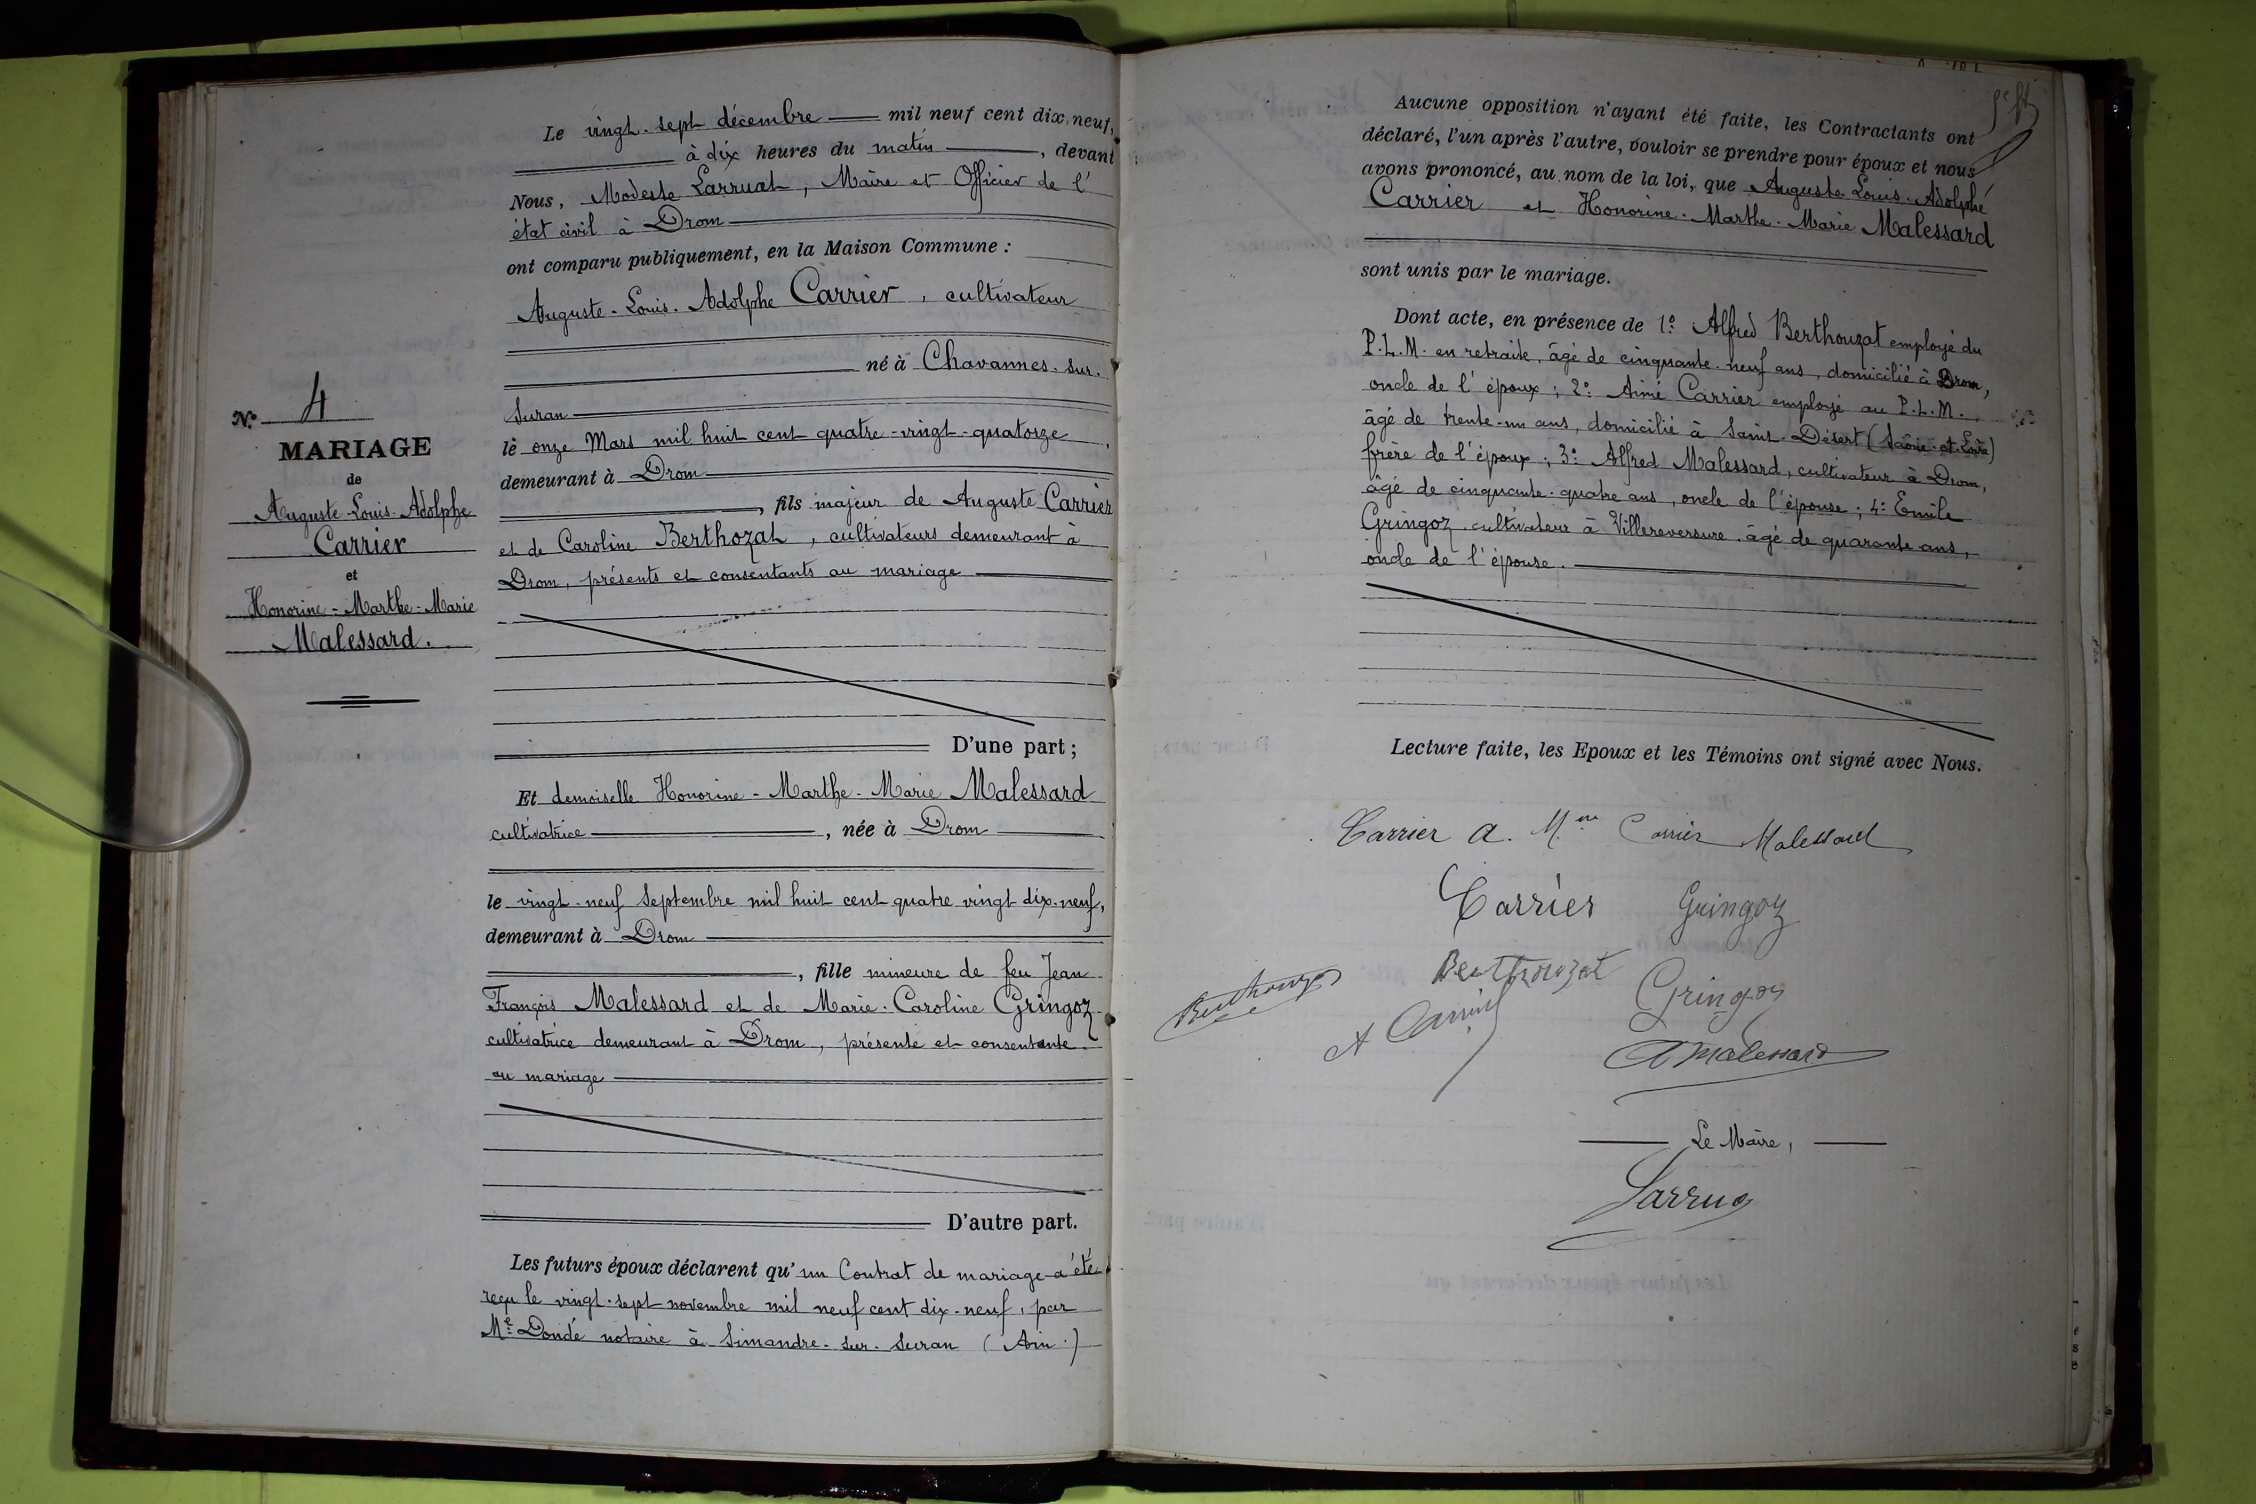 N° 4
MARIAGE
de
Auguste-Louis-Adolphe
Carrier
et
Honorine-Marthe-Marie
Malessard.
Le vingt-sept décembre mil neuf cent dix neuf,
à dix heures du matin, devant
Nous, Modeste Larruat, Maire et Officier de l'
état civil à Drom
ont comparu publiquement, en la Maison Commune :
Auguste-Louis-Adolphe Carrier, cultivateur
né à Chavannes-sur-
Suran
le onze Mars mil huit cent quatre-vingt-quatorze,
demeurant à Drom
, fils majeur de Auguste Carrier
et de Caroline Berthozat, cultivateurs demeurant à
Drom, présents et consentants au mariage
D'une part ;
Et demoiselle Honorine-Marthe-Marie Malessard
cultivatrice, née à Drom
le vingt-neuf Septembre mil huit cent quatre vingt dix-neuf,
demeurant à Drom
, fille mineure de feu Jean-
François Malessard et de Marie-Caroline Gringoz
cultivatrice demeurant à Drom, présente et consentante
au mariage
D'autre part.
Les futurs époux déclarent qu'un Contrat de mariage a été
reçu le vingt-sept novembre mil neuf cent dix-neuf, par
Me Dondé notaire à Simandre-sur-Suran (Ain.)
Aucune opposition n'ayant été faite, les Contractants ont
déclaré, l'un après l'autre, vouloir se prendre pour époux et nous
avons prononcé, au nom de la loi, que Auguste-Louis-Adolphe
Carrier et Honorine-Marthe-Marie Malessard
sont unis par le mariage.
Dont acte, en présence de 1° Alfred Berthouzat employé du
P.L.M. en retraite, âgé de cinquante-neuf ans, domicilié à Drom,
oncle de l'époux ; 2° Aimé Carrier employé au P.L.M.,
âgé de trente-un ans, domicilié à Saint-Désert (Saône-et-Loire)
frère de l'époux ; 3° Alfred Malessard, cultivateur à Drom,
âgé de cinquante-quatre ans, oncle de l'épouse ; 4° Emile
Gringoz cultivateur à Villereversure, âgé de quarante ans,
oncle de l'épouse.
Lecture faite, les Epoux et les Témoins ont signé avec Nous.
Carrier A. Mme Carrier Malessard
Carrier Gringoz
Berthouzat Gringoz
A Carrier A Malessard
Le Maire,
Larrua